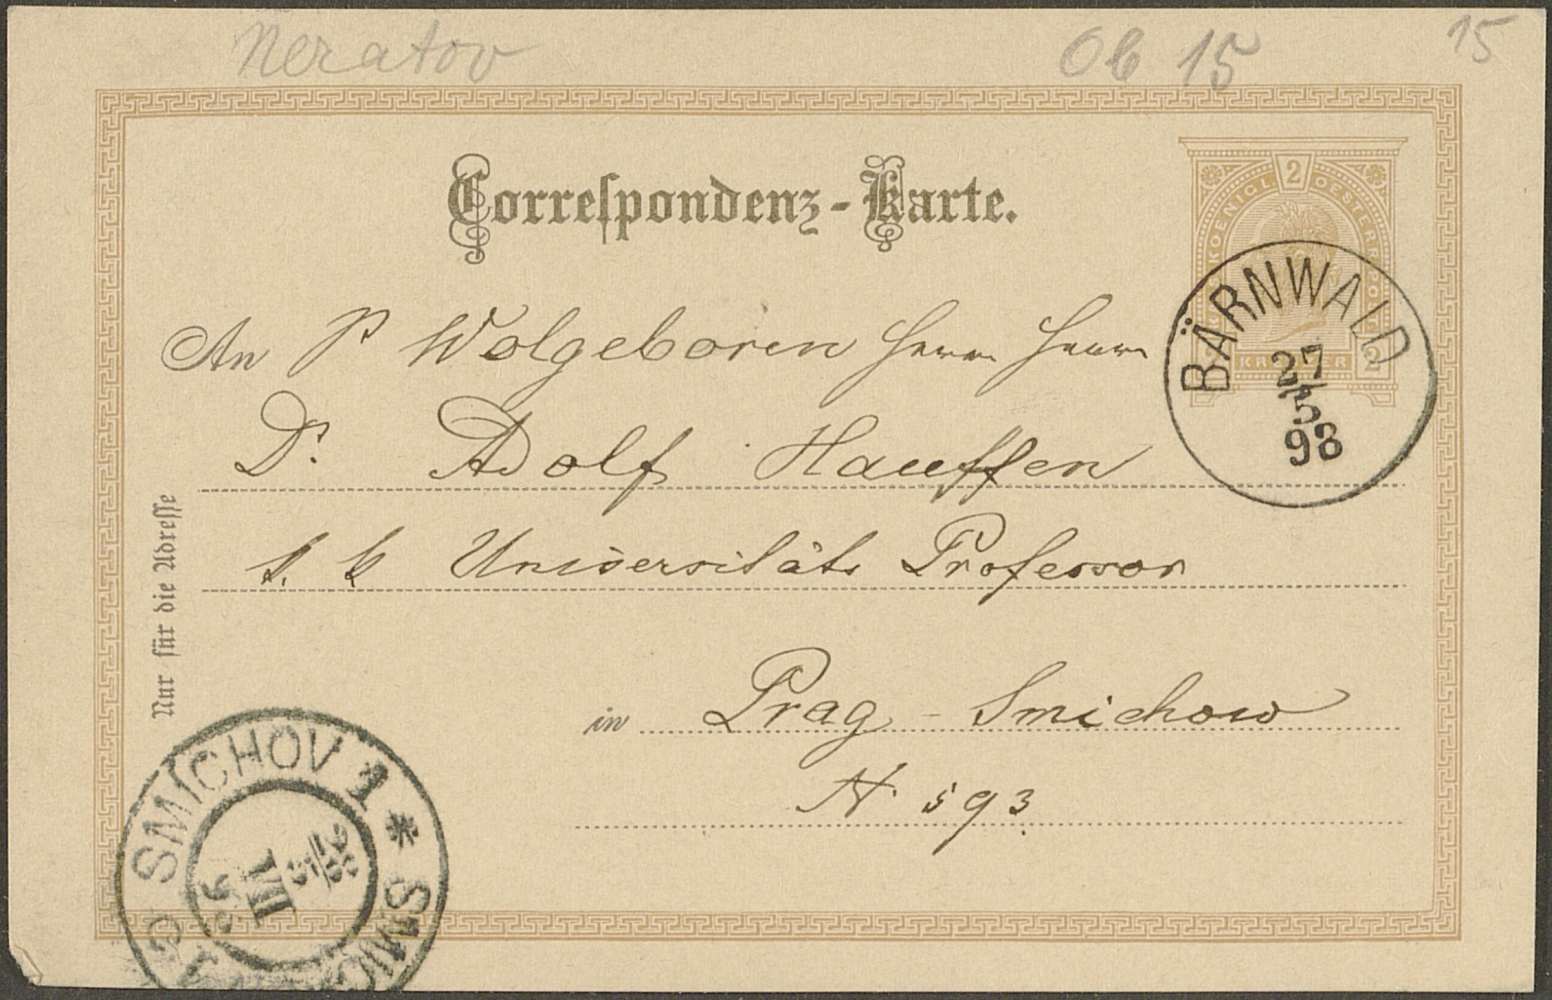 Neratov Ob 15 15
Correspondenz-Karte.
2
KOENIGL. OESTERR.
KREUZER 2
BÄRNWALD
27
5
98
An P Wolgeboren Herrn Herrn
Dr. Adolf Hauffen
k. k Universitäts Professor
in Prag - Smichow
N. 593.
Nur für die Adresse
SMICHOV 1 * SMIC
28/5
III